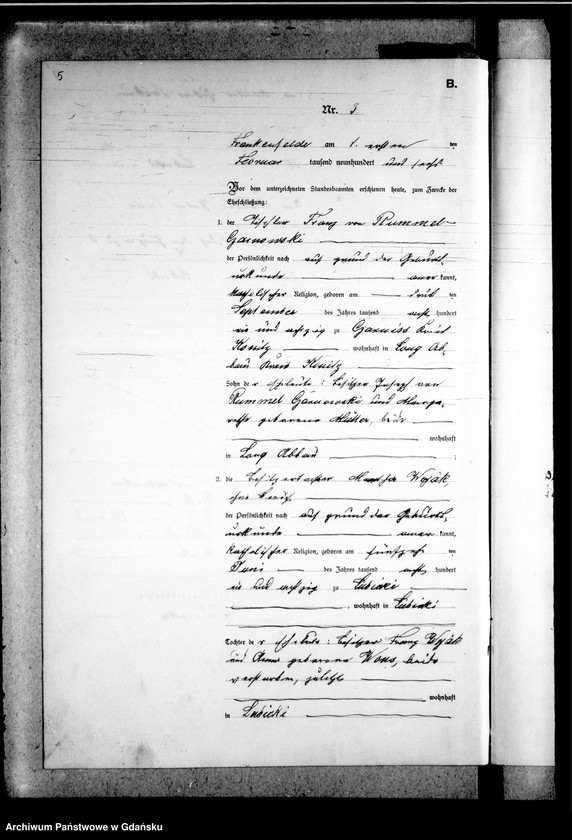 5
B.
Nr. 3
Frankenfelde am 1. ersten ten
Februar tausend neunhundert und sechs
Vor dem unterzeichneten Standesbeamten erschienen heute, zum Zwecke der
Eheschließung:
1. der Franz von Rummel
Garnowski
der Persönlichkeit nach auf grund der Geburts
urkunde aner kannt,
katholischer Religion, geboren am ten
September des Jahres tausend acht hundert
und achtzig zu Kreis
Konitz wohnhaft in Long Ab,
bau Kreis Konitz
Sohn der Eheleute: Besitzer Joseph von
Rummel Garnowski und Marga,
rethe geborene beide
wohnhaft
in Long Abbau ;
2. die Besitzertochter Wojak,
ohne Beruf
der Persönlichkeit nach auf grund der Geburts,
urkunde aner kannt,
katholischer Religion, geboren am fünfzehn ten
Juni des Jahres tausend acht hundert
und achtzig zu Lubicki
, wohnhaft in Lubicki
Tochter der Eheleute: Besitzer Franz Wojak
und Anna geborene Wons, beide
verstorben, zuletzt
wohnhaft
in Lubicki
Archiwum Państwowe w Gdańsku